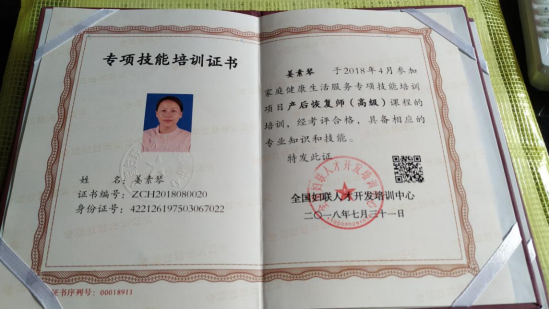 专项技能培训证书
姓 名：姜素琴
证书编号：ZCH2018080020
身份证号：422126197503067022
证书序列号：00018911
姜素琴 于2018年4月参加
家庭健康生活服务专项技能培训
项目产后恢复师（高级）课程的
培训，经考评合格，具备相应的
专业知识和技能。
特发此证
全国妇联人才开发培训中心
二〇一八年七月三十一日